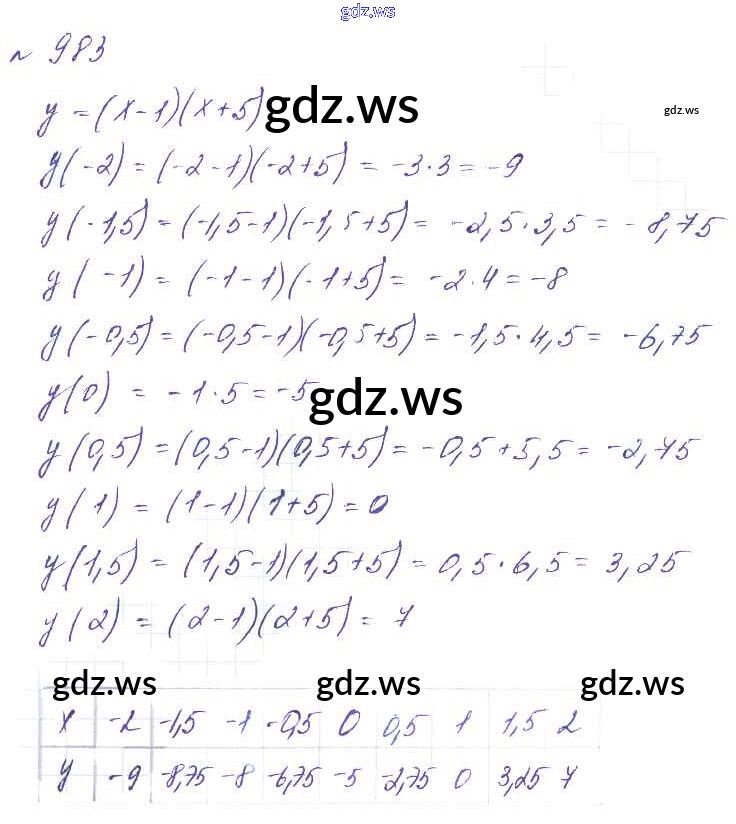 gdz.ws
№ 983
y = (x-1)(x+5) gdz.ws
gdz.ws
y(-2) = (-2-1)(-2+5) = -3·3 = -9
y(-1,5) = (-1,5-1)(-1,5+5) = -2,5·3,5 = -8,75
y(-1) = (-1-1)(-1+5) = -2·4 = -8
y(-0,5) = (-0,5-1)(-0,5+5) = -1,5·4,5 = -6,75
y(0) = -1·5 = -5
gdz.ws
y(0,5) = (0,5-1)(0,5+5) = -0,5+5,5 = -2,75
y(1) = (1-1)(1+5) = 0
y(1,5) = (1,5-1)(1,5+5) = 0,5·6,5 = 3,25
y(2) = (2-1)(2+5) = 7
gdz.ws gdz.ws gdz.ws
x -2 -1,5 -1 -0,5 0 0,5 1 1,5 2
y -9 -8,75 -8 -6,75 -5 -2,75 0 3,25 7